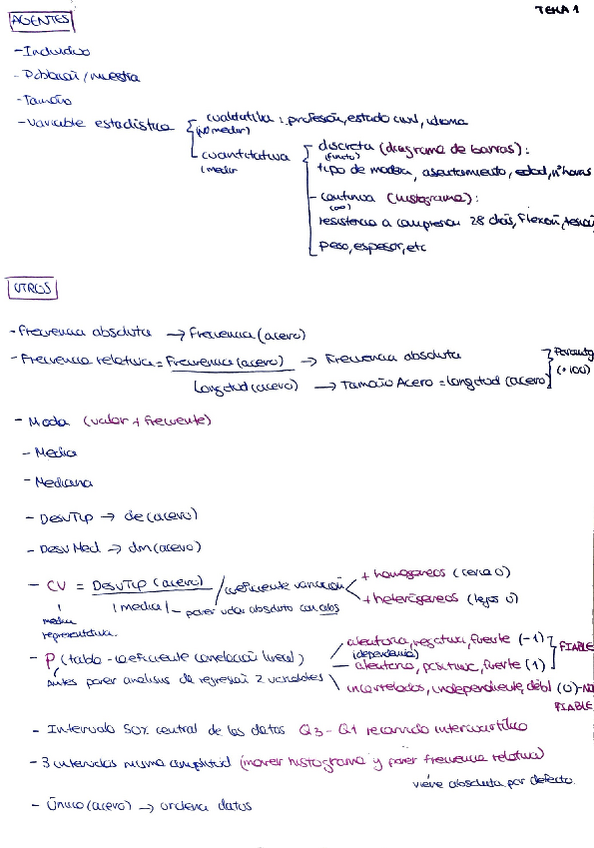 TEMA 1
AGENTES
- Individuo
- Población / muestra
- Tamaño
- Variable estadística cualitativa : profesión, estado civil, idioma
(no medir)
cuantitativa discreta (diagrama de barras) :
(medir (finito)
tipo de madera, asentamiento, edad, nº horas
- continua (histograma) :
(∞)
resistencia a compresión 28 días, flexión, tensión
peso, espesor, etc
OTROS
- Frecuencia absoluta → Frecuencia (acero)
- Frecuencia relativa = Frecuencia (acero) → Frecuencia absoluta
Longitud (acero) → Tamaño Acero = longitud (acero)
(·100)
- Moda (valor + frecuente)
- Media
- Mediana
- DesvTip → de (acero)
- Desv Med → dm (acero)
- CV = DesvTip (acero) / coeficiente variación + homogéneos (cerca 0)
| media | - poner valor absoluto con abs + heterogéneos (lejos 0)
media
representativa.
- P (tabla - coeficiente correlación lineal) aleatoria, negativa, fuerte (-1) FIABLE
(dependencia)
Antes poner análisis de regresión 2 variables - aleatoria, positiva, fuerte (1)
incorrelados, independiente, débil (0) - NO
FIABLE
- Intervalo 50% central de los datos Q3 - Q1 recorrido intercuartílico
- 3 intervalos misma amplitud (mover histograma y poner frecuencia relativa)
viene absoluta por defecto.
- Único (acero) → ordena datos